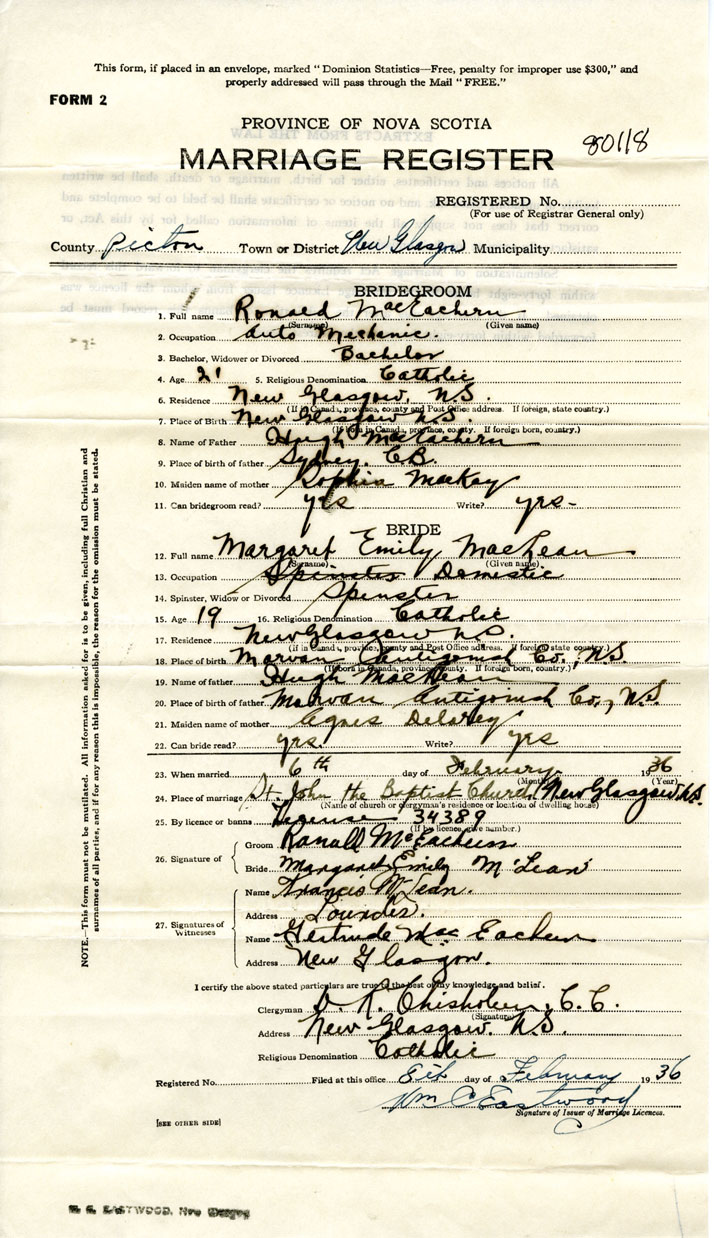 This form, if placed in an envelope, marked "Dominion Statistics—Free, penalty for improper use $300," and
properly addressed will pass through the Mail "FREE."
FORM 2
PROVINCE OF NOVA SCOTIA
80118
MARRIAGE REGISTER
REGISTERED No.
(For use of Registrar General only)
County Pictou Town or District New Glasgow Municipality
BRIDEGROOM
1. Full name Ronald MacEachern
(Surname) (Given name)
2. Occupation Auto Mechanic.
3. Bachelor, Widower or Divorced Bachelor
4. Age 21 5. Religious Denomination Catholic
6. Residence New Glasgow, N.S.
(If in Canada, province, county and Post Office address. If foreign, state country.)
7. Place of Birth New Glasgow N.S.
(If born in Canada, province, county. If foreign born, country.)
8. Name of Father Hugh MacEachern
9. Place of birth of father Sydney. C.B.
10. Maiden name of mother Sophia MacKay
11. Can bridegroom read? yes Write? yes-
BRIDE
12. Full name Margaret Emily MacLean
(Surname) (Given name)
13. Occupation Spinster Domestic
14. Spinster, Widow or Divorced Spinster
15. Age 19 16. Religious Denomination Catholic
17. Residence New Glasgow N.S.
(If in Canada, province, county and Post Office address. If foreign state country.)
18. Place of birth Antigonish Co., N.S.
(If born in Canada, province, county. If foreign born, country.)
19. Name of father Hugh MacLean
20. Place of birth of father Antigonish Co., N.S.
21. Maiden name of mother Agnes Delorey
22. Can bride read? yes. Write? yes
23. When married 6th day of February 1936
(Month) (Year)
24. Place of marriage St. John the Baptist Church (New Glasgow N.S.
(Name of church or clergyman's residence or location of dwelling house)
25. By licence or banns License 34389
(If by licence give number.)
26. Signature of
Groom Ranald McEachern
Bride Margaret Emily M'Lean
27. Signatures of Witnesses
Name Francis McLean.
Address Lourdes.
Name Gertrude Mac Eachern
Address New Glasgow.
I certify the above stated particulars are true to the best of my knowledge and belief.
Clergyman D. R. Chisholm, C.C.
(Signature)
Address New Glasgow. N.S.
Religious Denomination Catholic
Registered No. Filed at this office day of February 1936
Wm C Eastwood
Signature of Issuer of Marriage Licences.
[SEE OTHER SIDE]
EASTWOOD, New Glasgow
NOTE.—This form must not be mutilated. All information asked for is to be given, including full Christian and
surnames of all parties, and if for any reason this is impossible, the reason for the omission must be stated.